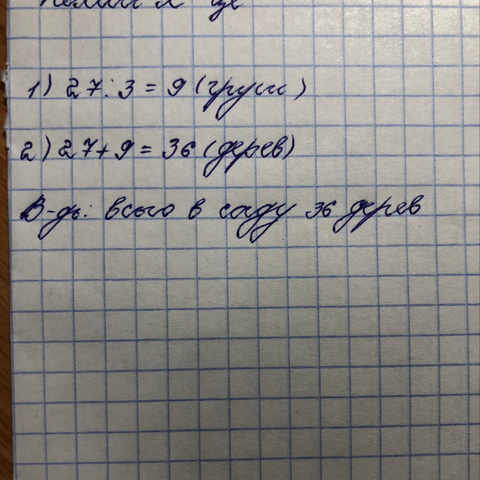 1) 27:3=9 (груш)
2) 27+9=36 (дерев)
В-дь: всього в саду 36 дерев